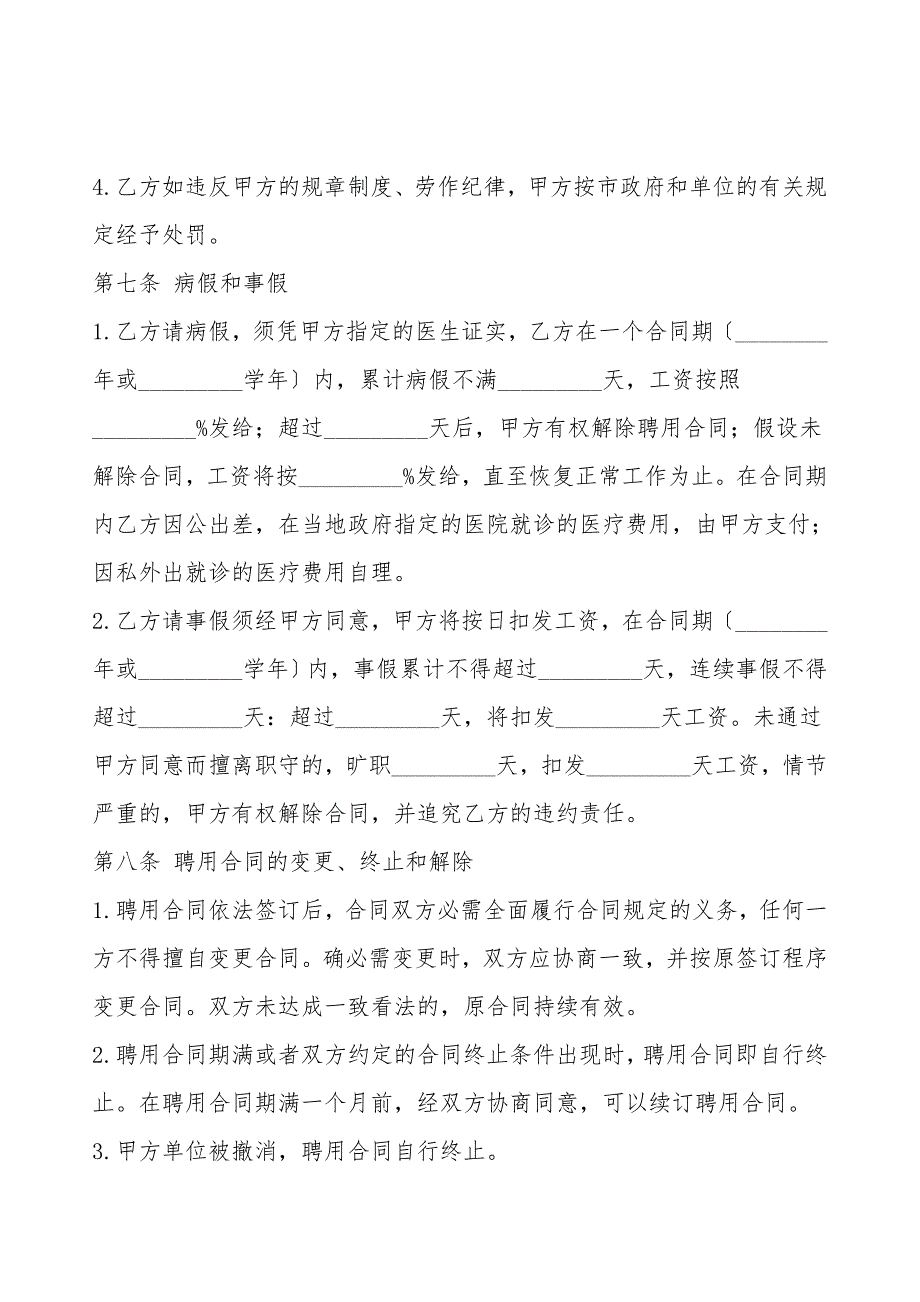 4.乙方如违反甲方的规章制度、劳作纪律，甲方按市政府和单位的有关规
定经予处罚。
第七条 病假和事假
1.乙方请病假，须凭甲方指定的医生证实，乙方在一个合同期〔________
年或_________学年〕内，累计病假不满_________天，工资按照
_________%发给；超过_________天后，甲方有权解除聘用合同；假设未
解除合同，工资将按_________%发给，直至恢复正常工作为止。在合同期
内乙方因公出差，在当地政府指定的医院就诊的医疗费用，由甲方支付；
因私外出就诊的医疗费用自理。
2.乙方请事假须经甲方同意，甲方将按日扣发工资，在合同期〔________
年或_________学年〕内，事假累计不得超过_________天，连续事假不得
超过_________天：超过_________天，将扣发_________天工资。未通过
甲方同意而擅离职守的，旷职_________天，扣发_________天工资，情节
严重的，甲方有权解除合同，并追究乙方的违约责任。
第八条 聘用合同的变更、终止和解除
1.聘用合同依法签订后，合同双方必需全面履行合同规定的义务，任何一
方不得擅自变更合同。确必需变更时，双方应协商一致，并按原签订程序
变更合同。双方未达成一致看法的，原合同持续有效。
2.聘用合同期满或者双方约定的合同终止条件出现时，聘用合同即自行终
止。在聘用合同期满一个月前，经双方协商同意，可以续订聘用合同。
3.甲方单位被撤消，聘用合同自行终止。